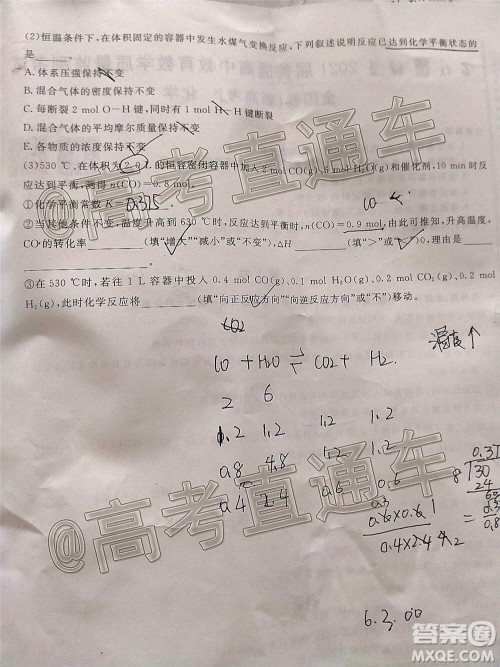 (2)恒温条件下,在体积固定的容器中发生水煤气变换反应,下列叙述说明反应已达到化学平衡状态的
是
A. 体系压强保持不变
B. 混合气体的密度保持不变
C. 每断裂 2 mol O—H 键同时 1 mol H—H 键断裂
D. 混合气体的平均摩尔质量保持不变
E. 各物质的浓度保持不变
(3)530 ℃,在体积为 2.0 L 的恒容密闭容器中加入 2 mol CO、6 mol H₂O(g)和催化剂,10 min时反
应达到平衡,测得 n(CO)=0.8 mol。
①化学平衡常数 K= 0.375
②当其他条件不变,温度升高到 630 ℃时,反应达到平衡时,n(CO)=0.9 mol,由此可推知,升高温度,
CO 的转化率 (填“增大”“减小”或“不变”),ΔH (填“>”或“<”)0,说明理由是
③在 530 ℃时,若往 1 L 容器中投入 0.4 mol CO(g)、0.1 mol H₂O(g)、0.2 mol CO₂(g)、0.2 mol
H₂(g),此时化学反应将 (填“向正反应方向”“向逆反应方向”或“不”)移动。
CO
CO2
温度↑
CO + H2O ⇌ CO2 + H2
2 6
1.2 1.2 1.2 1.2
0.8 4.8 1.2 1.2
0.4 2.4 0.6 0.6
8 30
24
60
0.4×2.4
6.3.00
@高考直通车
@高考直通车
@高考直通车
答案圈
MXQE.COM